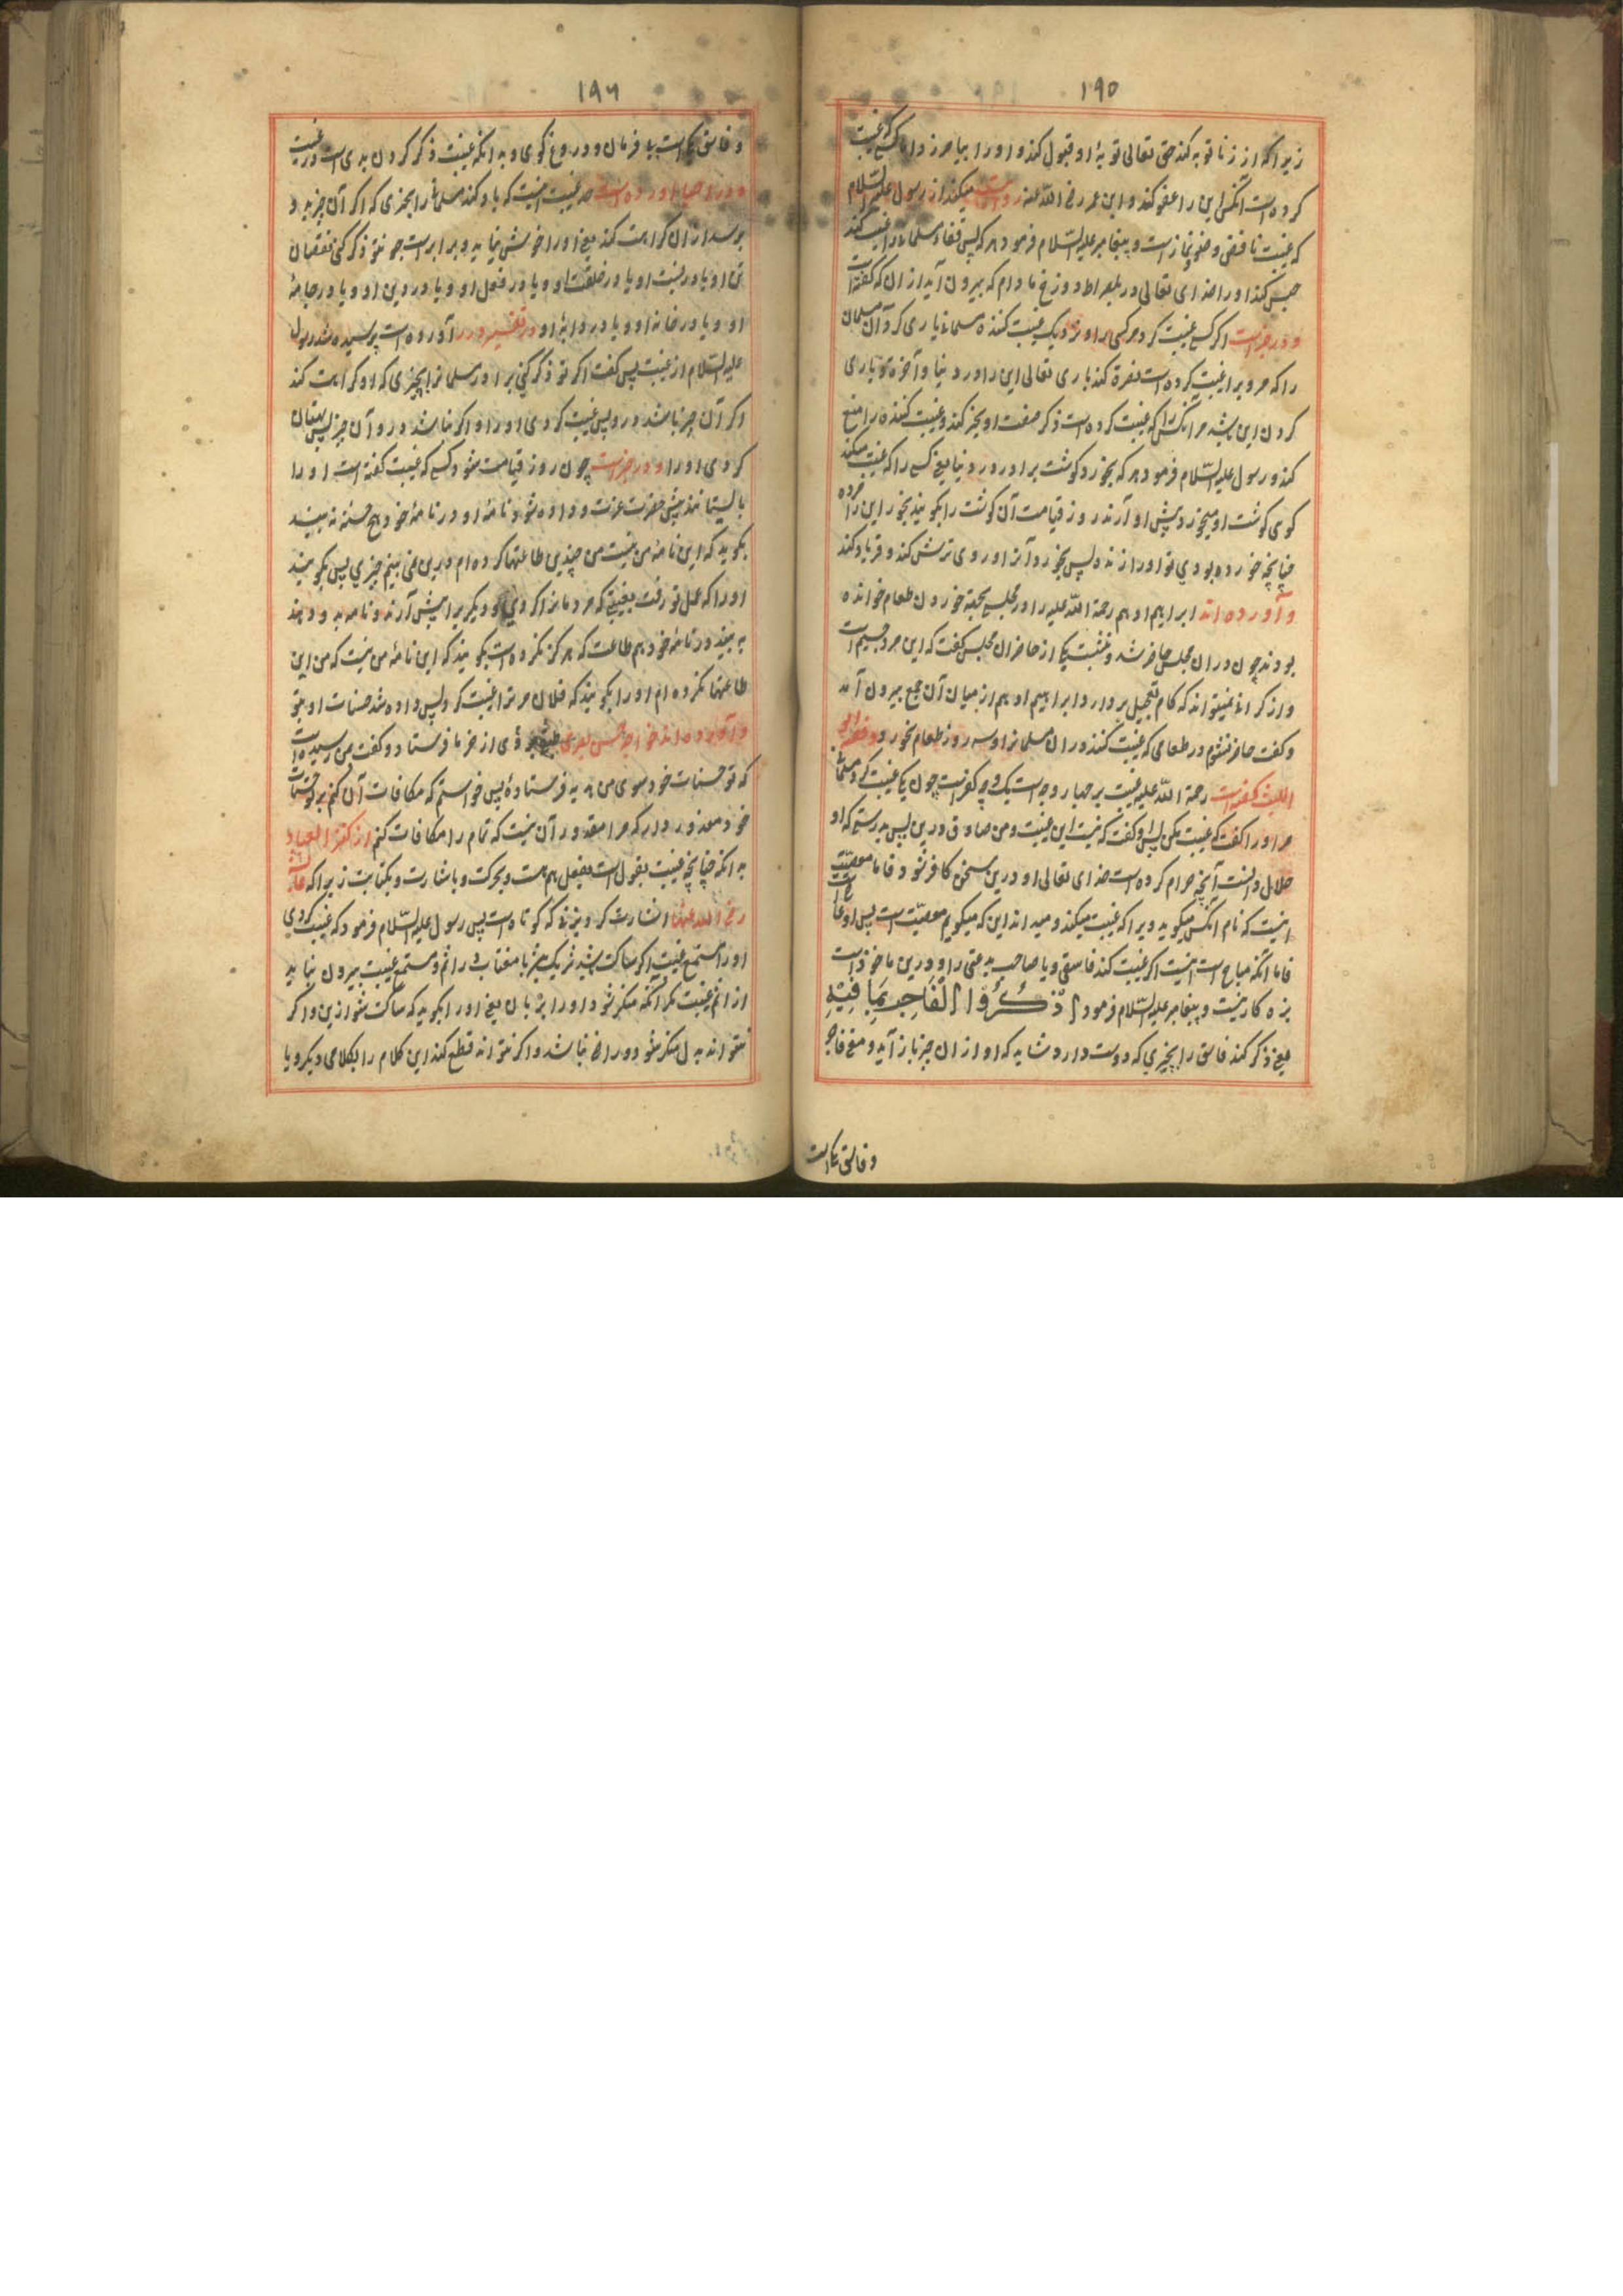 ۱۹۵
زیرا که از زنا توبه کند حق تعالی توبهٔ او قبول کند و او را بیامرزد اما کسی که غیبت
کرده است تا آنکس این را عفو کند و ابن عمر رضی الله عنه روایت میکند از رسول علیه السلام
که غیبت ناقض وضو و نماز است و پیغامبر علیه السلام فرمود هر که پس قفای مسلمانی را غیبت کند
حبس کند او را خدای تعالی در پلصراط دوزخ مادام که بیرون آید از آن که گفته است
و در خبر است اگر کسی غیبت کرد مر کسی را و نزدیک غیبت کننده مسلمانی یاری کرد آن مسلمان
را که مرو برا غیبت کرده است نصرة کند باری تعالی این را در دنیا و آخرة و یاری
کردن این باشد مر آنکس را که غیبت کرده است ذکر صفت او بخیر کند و غیبت کننده را منع
کند و رسول علیه السلام فرمود هر که بخورد گوشت برادر در دنیا یعنی کسی را که غیبت میکند
گوی گوشت او میخورد پیش او آرند روز قیامت آن گوشت را بگویند بخور این را مرده
چنانچه خورده بودی تو او را زنده پس بخورد آنرا و روی ترش کند و فریاد کند
و آورده اند ابراهیم ادهم رحمة الله علیه را در مجلسی بجهة خوردن طعام خوانده
بودند چون در آن مجلس حاضر شد و بنشست یکی از حاضران مجلس گفت که این مرد جسیم است
و از گرانی نمیتواند که گام بتعجیل بردارد ابراهیم ادهم از میان آن جمع بیرون آمد
و گفت حاضر نشوم در طعامی که غیبت کنند در آن مسلمانرا و سه روز طعام نخورد و فقیه ابو
اللیث گفته است رحمة الله علیه غیبت بر چهار وجه است یک وجه کفر است چون یکی غیبت کرد مسلمانی
مر او را گفت که غیبت مکن پس او گفت که نیست این غیبت و من صادق درین پس بدرستی که او
حلال دانست آنچه حرام کرده است خدای تعالی او درین سخن کافر شود فاما معصیت
اینست که نام آنکس میگوید ویرا که غیبت میکند و میداند این که میگویم معصیت است پس او عاصی است
فاما آنکه مباح است اینست اگر غیبت کند فاسقی و یا صاحب بدعتی را و درین ماخوذ است
بزه کار نیست و پیغامبر علیه السلام فرمود اُذْکُرُوا الْفَاجِرَ بِمَا فِیْهِ
یعنی ذکر کند فاسق را بچیزی که دوست دارد شاید که او از آن چیز باز آید و معنی فاجر
و فاسق یکی است
۱۹۶
و فاسق یکی است بی فرمان و دروغ گوی و بدانکه غیبت ذکر کردن بدی است در غیبت
و در احیا آورده است حد غیبت اینست که یاد کند مسلمانی را بچیزی که اگر آن چیز بدو
برسد از آن کراهت کند یعنی او را خوش نیاید و برابر است چو تو ذکر کنی نقصان
تن او یا در نسبت او یا در خلقت او و یا در فعل او و یا در دین او و یا در جامهٔ
او و یا در خانه او و یا در دابهٔ او و در تفسیر درر آورده است پرسیده شد رسول
علیه السلام از غیبت پس گفت اگر تو ذکر کنی برادر مسلمانرا بچیزی که او کراهت کند
اگر آن چیز باشد درو پس غیبت کردی او را و اگر نباشد درو آن چیز پس بهتان
کردی او را و در خبر است چون روز قیامت شود کسی که غیبت گفته است او را
بایستانند پیش حضرت عزت و داده شود نامهٔ او در نامهٔ خود هیچ حسنه نه بیند
بگوید که این نامهٔ من نیست من چندین طاعتها کرده ام درین نمی بینم چیزی پس بگویند
او را که عمل تو رفت بغیبتی که مردمانرا کردی و دیگر برا پیش آرند و نامه بدو دهند
به بیند در نامهٔ خود هم طاعت که هرگز نکرده است بگوید که این نامهٔ من نیست که من این
طاعتها نکرده ام او را بگویند که فلان مر ترا غیبت کرد پس داده شد حسنات او بتو
و آورده اند خواجه حسن بصری طبقی بودی از خرما فرستاد و گفت بمن رسیده است
که تو حسنات خود سوی من هدیه فرستادهٔ پس خواستم که مکافات آن کنم بر حسنات
خود معذور دار که مرا مقدور آن نیست که تمام را مکافات کنم از کنز العباد
بدانکه چنانچه غیبت بقول است بفعل هم هست و بحرکت و باشارت و بکتابت زیرا که عایشه
رضی الله عنها اشارت کرد بزنی که کوتاه است پس رسول علیه السلام فرمود که غیبت کردی
او را و مستمع غیبت اگر ساکت باشد شریک نیز با مغتاب در اثم و مستمع غیبت بیرون نیاید
از اثم غیبت مگر آنکه منکر شود او را بزبان یعنی او را بگوید که ساکت شو ازین و اگر
نتواند بدل منکر شود و راضی نباشد و اگر نتواند قطع کند این کلام را بکلامی دیگر و یا